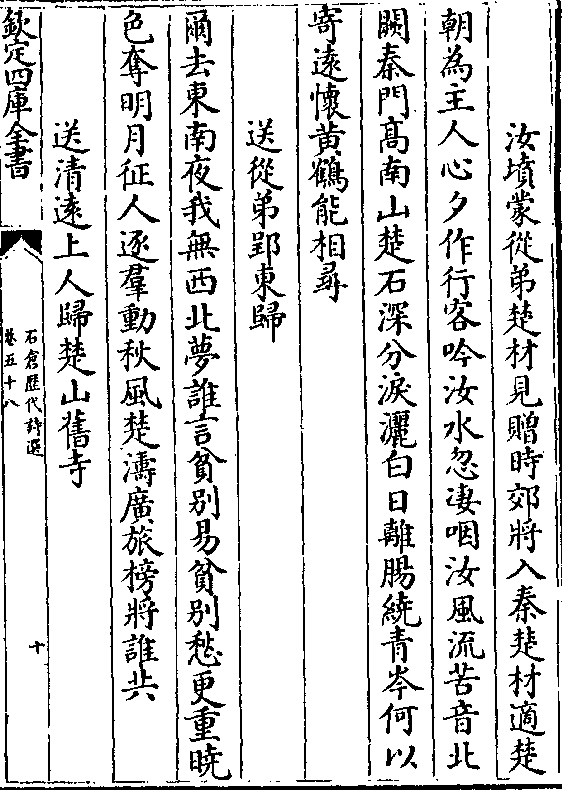 汝墳蒙從弟楚材見贈時郊將入秦楚材適楚
朝為主人心夕作行客吟汝水忽凄咽汝風流苦音北
闕秦門髙南山楚石深分淚灑白日離腸繞青岑何以
寄逺懷黄鶴能相尋
送從弟郢東歸
爾去東南夜我無西北夢誰言貧别易貧别愁更重曉
色奪明月征人逐羣動秋風楚濤廣旅榜將誰共
送清逺上人歸楚山舊寺
欽定四庫全書
石倉歴代詩選
卷五十八
十